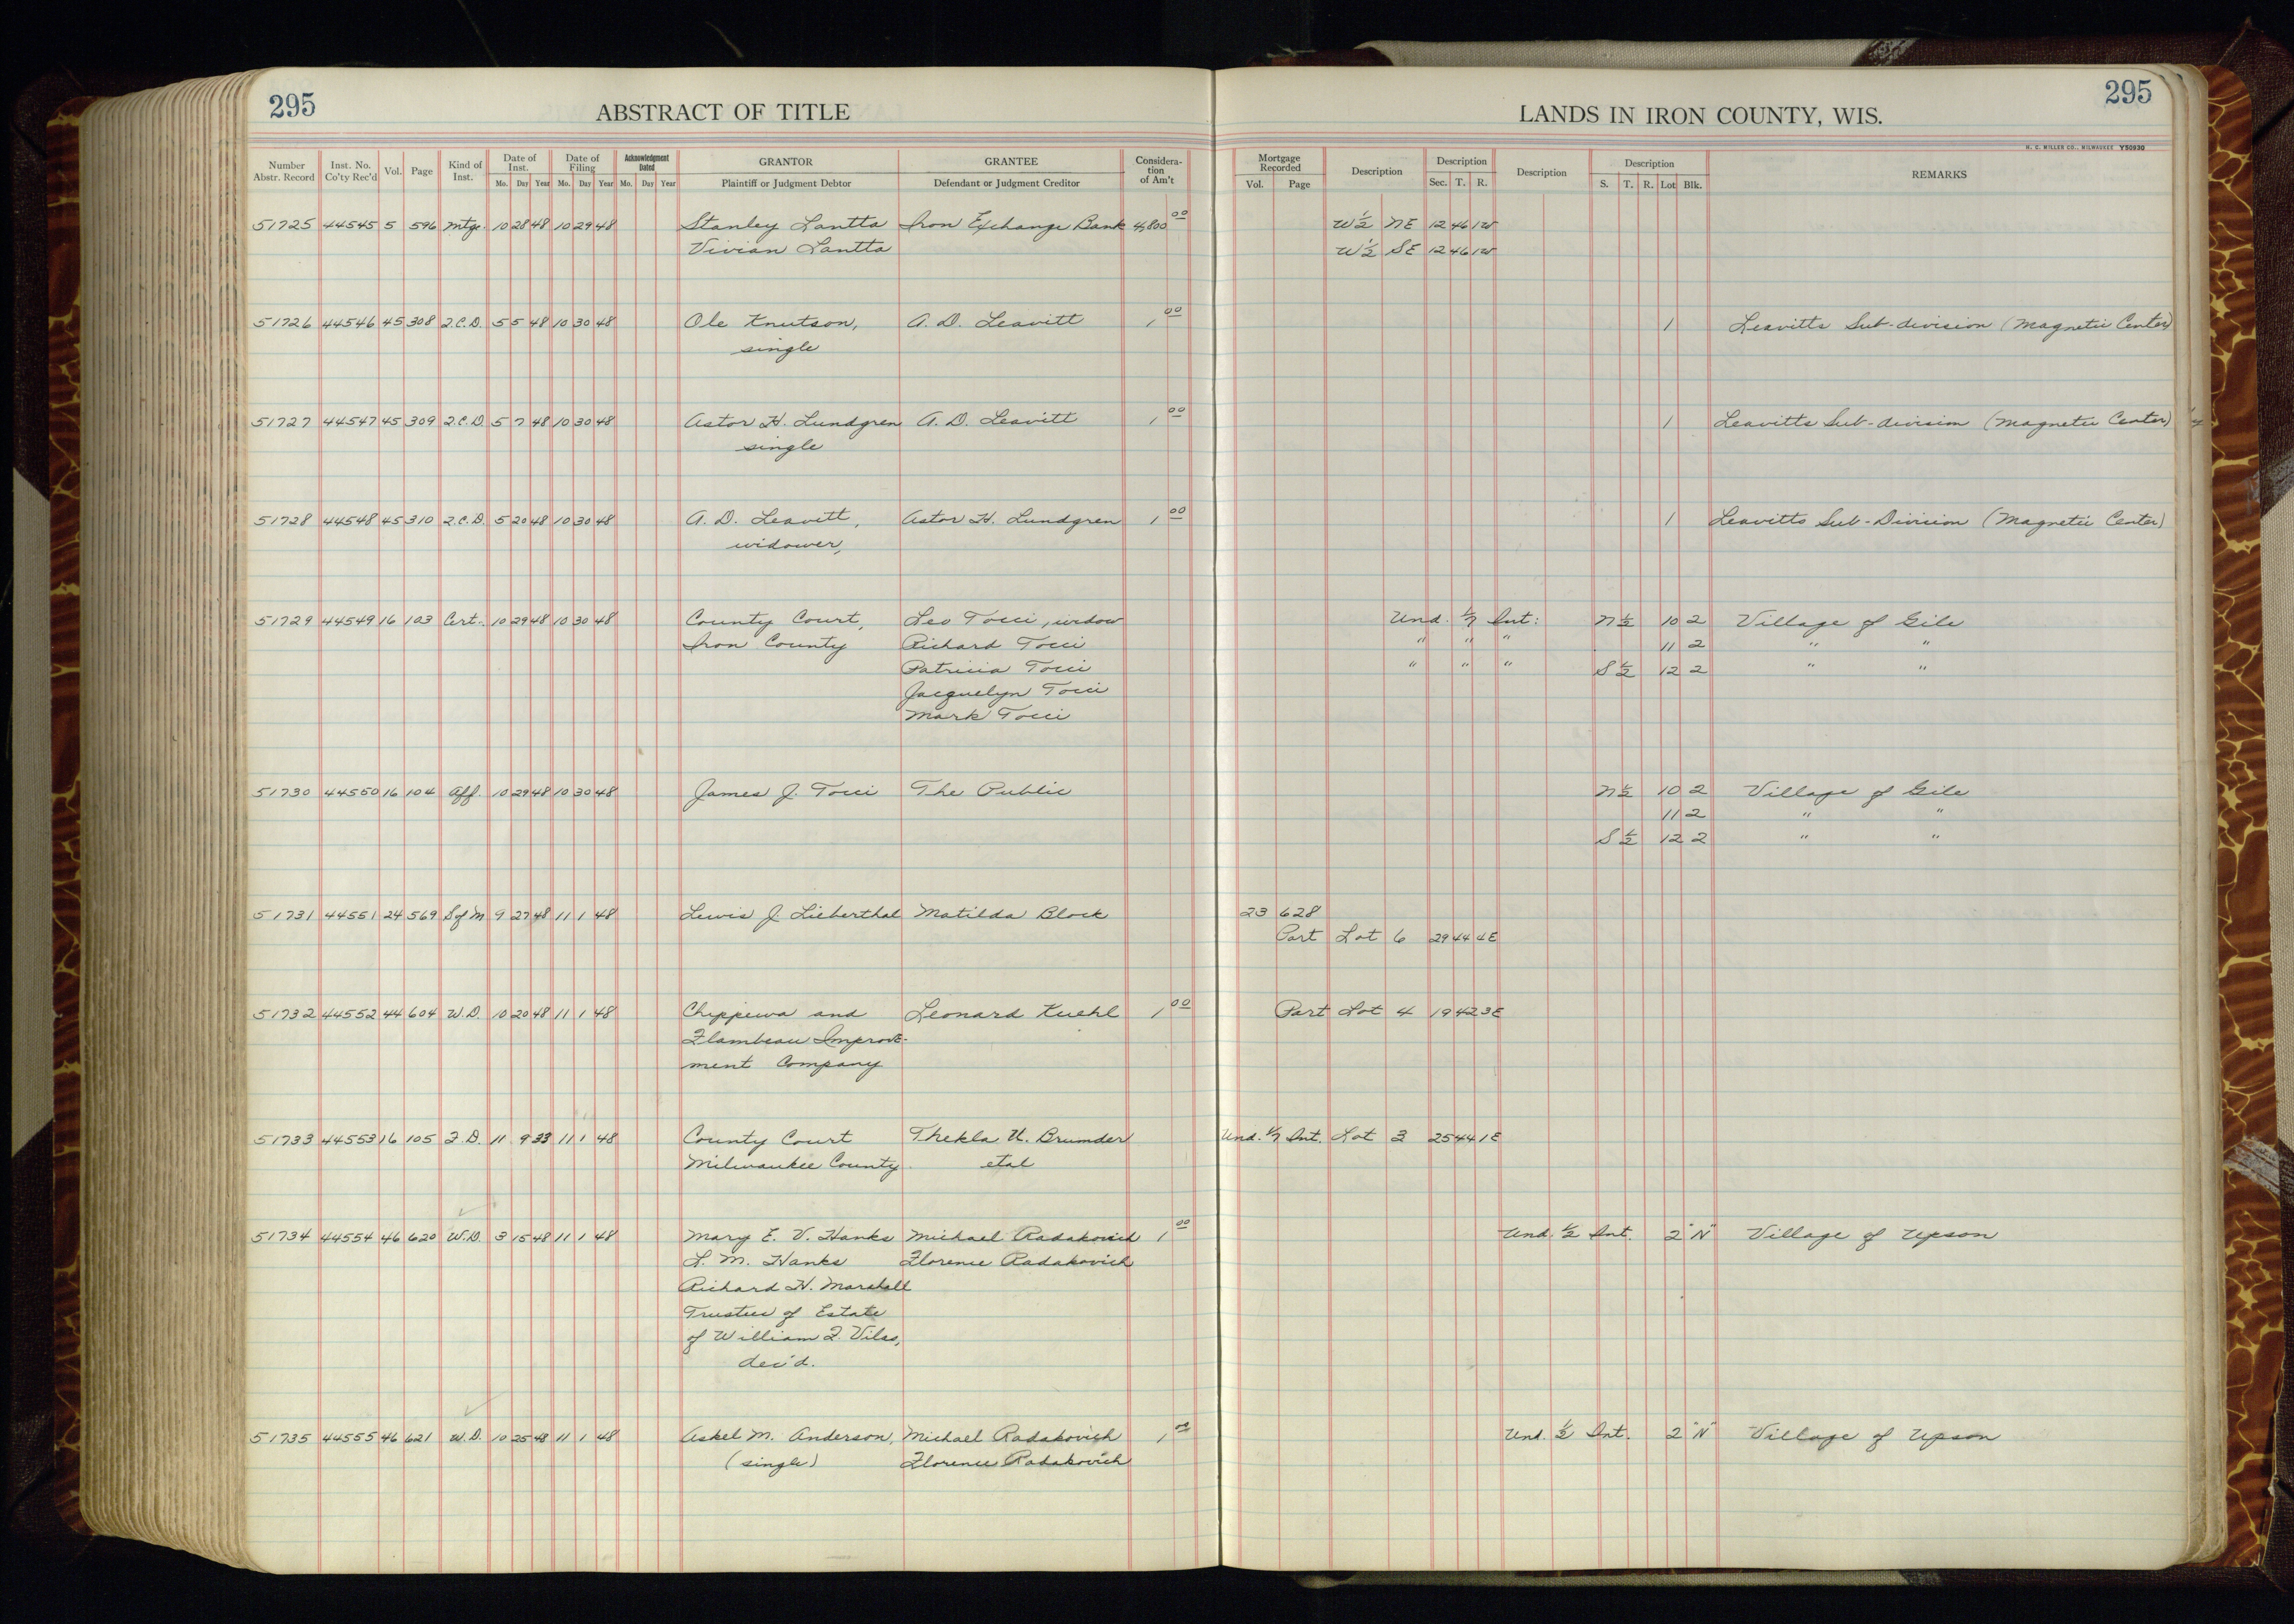 295
ABSTRACT OF TITLE
LANDS IN IRON COUNTY, WIS.
295
H. C. MILLER CO., MILWAUKEE Y50930
Number Abstr. Record | Inst. No. Co'ty Rec'd | Vol. | Page | Kind of Inst. | Date of Inst. Mo. Day Year | Date of Filing Mo. Day Year | Acknowledgment Dated Mo. Day Year | GRANTOR Plaintiff or Judgment Debtor | GRANTEE Defendant or Judgment Creditor | Considera-tion of Am't | Mortgage Recorded Vol. Page | Description | Description Sec. T. R. | Description | Description S. T. R. Lot Blk. | REMARKS
51725 44545 5 596 Mtge. 10 28 48 10 29 48 Stanley Lantta Iron Exchange Bank 4,800 00 W 1/2 NE 12 46 1W
Vivian Lantta W 1/2 SE 12 46 1W
51726 44546 45 308 2.C.D. 5 5 48 10 30 48 Ole Knutson, A. D. Leavitt 1 00 1 Leavitts Sub-division (Magnetic Center)
single
51727 44547 45 309 2.C.D. 5 7 48 10 30 48 Astor H. Lundgren A. D. Leavitt 1 00 1 Leavitts Sub-division (Magnetic Center)
single
51728 44548 45 310 2.C.D. 5 20 48 10 30 48 A. D. Leavitt, Astor H. Lundgren 1 00 1 Leavitts Sub-Division (Magnetic Center)
widower,
51729 44549 16 103 Cert. 10 29 48 10 30 48 County Court, Leo Tocci, widow Und. 1/7 Int: N 1/2 10 2 Village of Gile
Iron County Richard Tocci " " " 11 2 " "
Patricia Tocci " " " S 1/2 12 2 " "
Jacquelyn Tocci
Mark Tocci
51730 44550 16 104 Aff. 10 29 48 10 30 48 James J. Tocci The Public N 1/2 10 2 Village of Gile
11 2 " "
S 1/2 12 2 " "
51731 44551 24 569 S of M 9 27 48 11 1 48 Lewis J. Lieberthal Matilda Block 23 628
Part Lot 6 29 44 4E
51732 44552 44 604 W.D. 10 20 48 11 1 48 Chippewa and Leonard Kuehl 1 00 Part Lot 4 19 42 3E
Flambeau Improve-
ment Company
51733 44553 16 105 F.D. 11 9 33 11 1 48 County Court Thekla U. Brumder Und. 1/7 Int. Lot 3 25 44 1E
Milwaukee County etal
51734 44554 46 620 W.D. 3 15 48 11 1 48 Mary E. V. Hanks Michael Radakovich 1 00 Und. 1/2 Int. 2 "N" Village of Upson
L. M. Hanks Florence Radakovich
Richard H. Marshall
Trustees of Estate
of William F. Vilas,
dec'd.
51735 44555 46 621 W.D. 10 25 48 11 1 48 Askel M. Anderson, Michael Radakovich 1 00 Und. 1/2 Int. 2 "N" Village of Upson
(single) Florence Radakovich